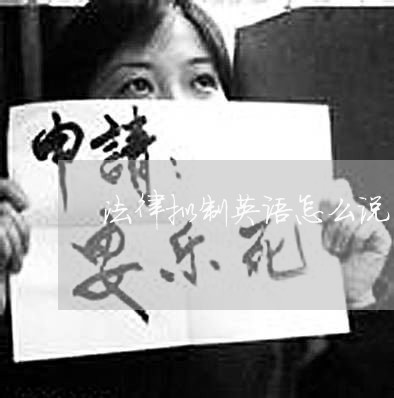 申請：
法律拟制英语怎么说
安乐死